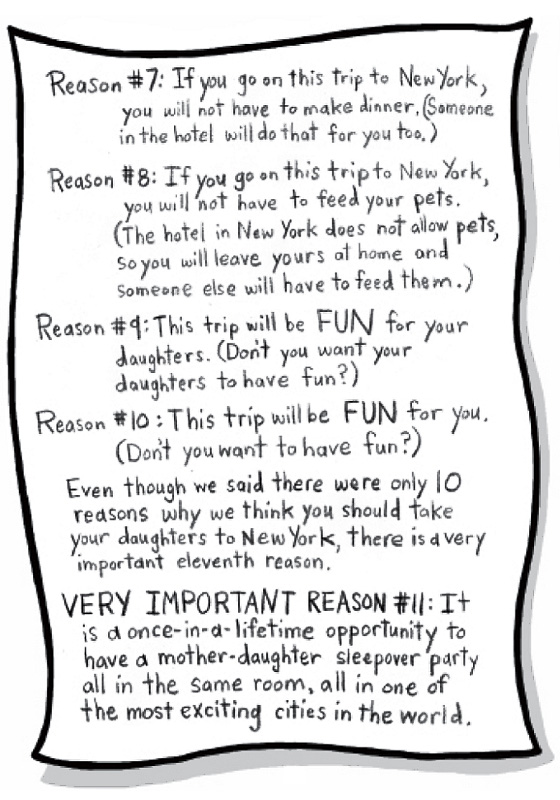 Reason #7: If you go on this trip to New York,
you will not have to make dinner. (Someone
in the hotel will do that for you too.)
Reason #8: If you go on this trip to New York,
you will not have to feed your pets.
(The hotel in New York does not allow pets,
so you will leave yours at home and
someone else will have to feed them.)
Reason #9: This trip will be FUN for your
daughters. (Don't you want your
daughters to have fun?)
Reason #10: This trip will be FUN for you.
(Don't you want to have fun?)
Even though we said there were only 10
reasons why we think you should take
your daughters to New York, there is a very
important eleventh reason.
VERY IMPORTANT REASON #11: It
is a once-in-a-lifetime opportunity to
have a mother-daughter sleepover party
all in the same room, all in one of
the most exciting cities in the world.